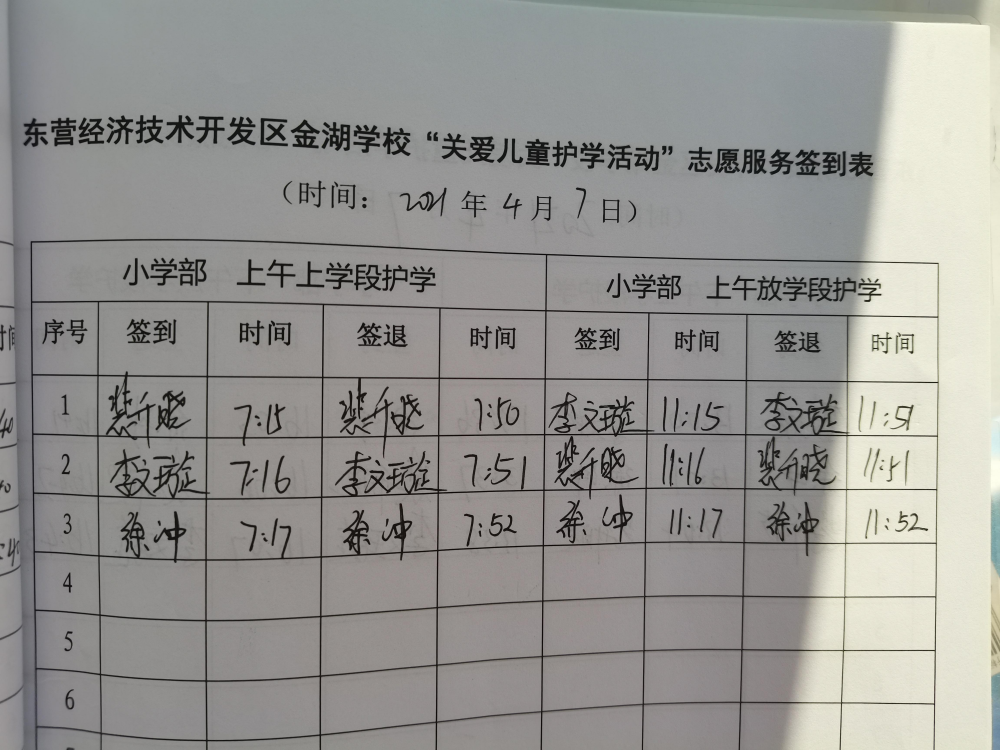 东营经济技术开发区金湖学校“关爱儿童护学活动”志愿服务签到表
（时间： 2021 年 4 月 7 日）
小学部 上午上学段护学 小学部 上午放学段护学
序号 签到 时间 签退 时间 签到 时间 签退 时间
1 7:15 7:50 李文璇 11:15 李文璇 11:51
2 李文璇 7:16 李文璇 7:51 11:16 11:51
3 徐冲 7:17 徐冲 7:52 徐冲 11:17 徐冲 11:52
4
5
6